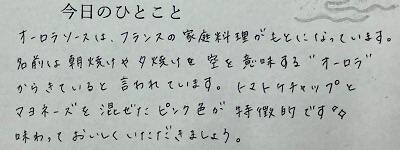 今日のひとこと
オーロラソースは、フランスの家庭料理がもとになっています。
名前は朝焼けや夕焼けを空を意味する"オーロラ"
からきていると言われています。トマトケチャップと
マヨネーズを混ぜたピンク色が特徴的です✧
味わっておいしくいただきましょう。